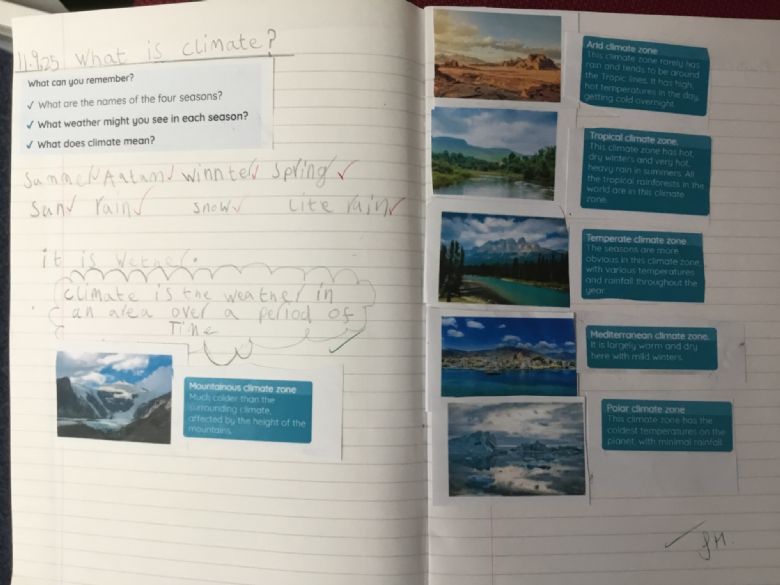 11.9.25 What is climate?
What can you remember?
✓ What are the names of the four seasons?
✓ What weather might you see in each season?
✓ What does climate mean?
Summer Autam winnter spring
Sun rain snow Lite rain
it is wether.
climate is the weather in
an area over a period of
Time
Mountainous climate zone
Much colder than the
surrounding climate,
affected by the height of the
mountains.
Arid climate zone
This climate zone rarely has
rain and tends to be around
the Tropic lines. It has high,
hot temperatures in the day,
getting cold overnight.
Tropical climate zone.
This climate zone has hot,
dry winters and very hot,
heavy rain in summers. All
the tropical rainforests in the
world are in this climate
zone.
Temperate climate zone
The seasons are more
obvious in this climate zone
with various temperatures
and rainfall throughout the
year.
Mediterranean climate zone.
It is largely warm and dry
here with mild winters.
Polar climate zone
This climate zone has the
coldest temperatures on the
planet, with minimal rainfall.